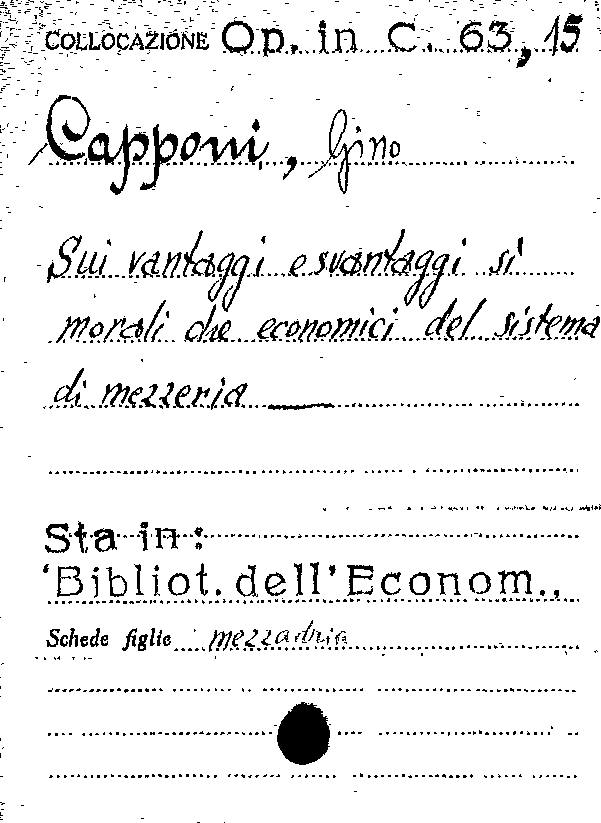 COLLOCAZIONE Op. in C. 63, 15
Capponi, Gino
Sui vantaggi e svantaggi si
morali che economici del sistema
di mezzeria
Sta in:
'Bibliot. dell'Econom.,
Schede figlie mezzadria